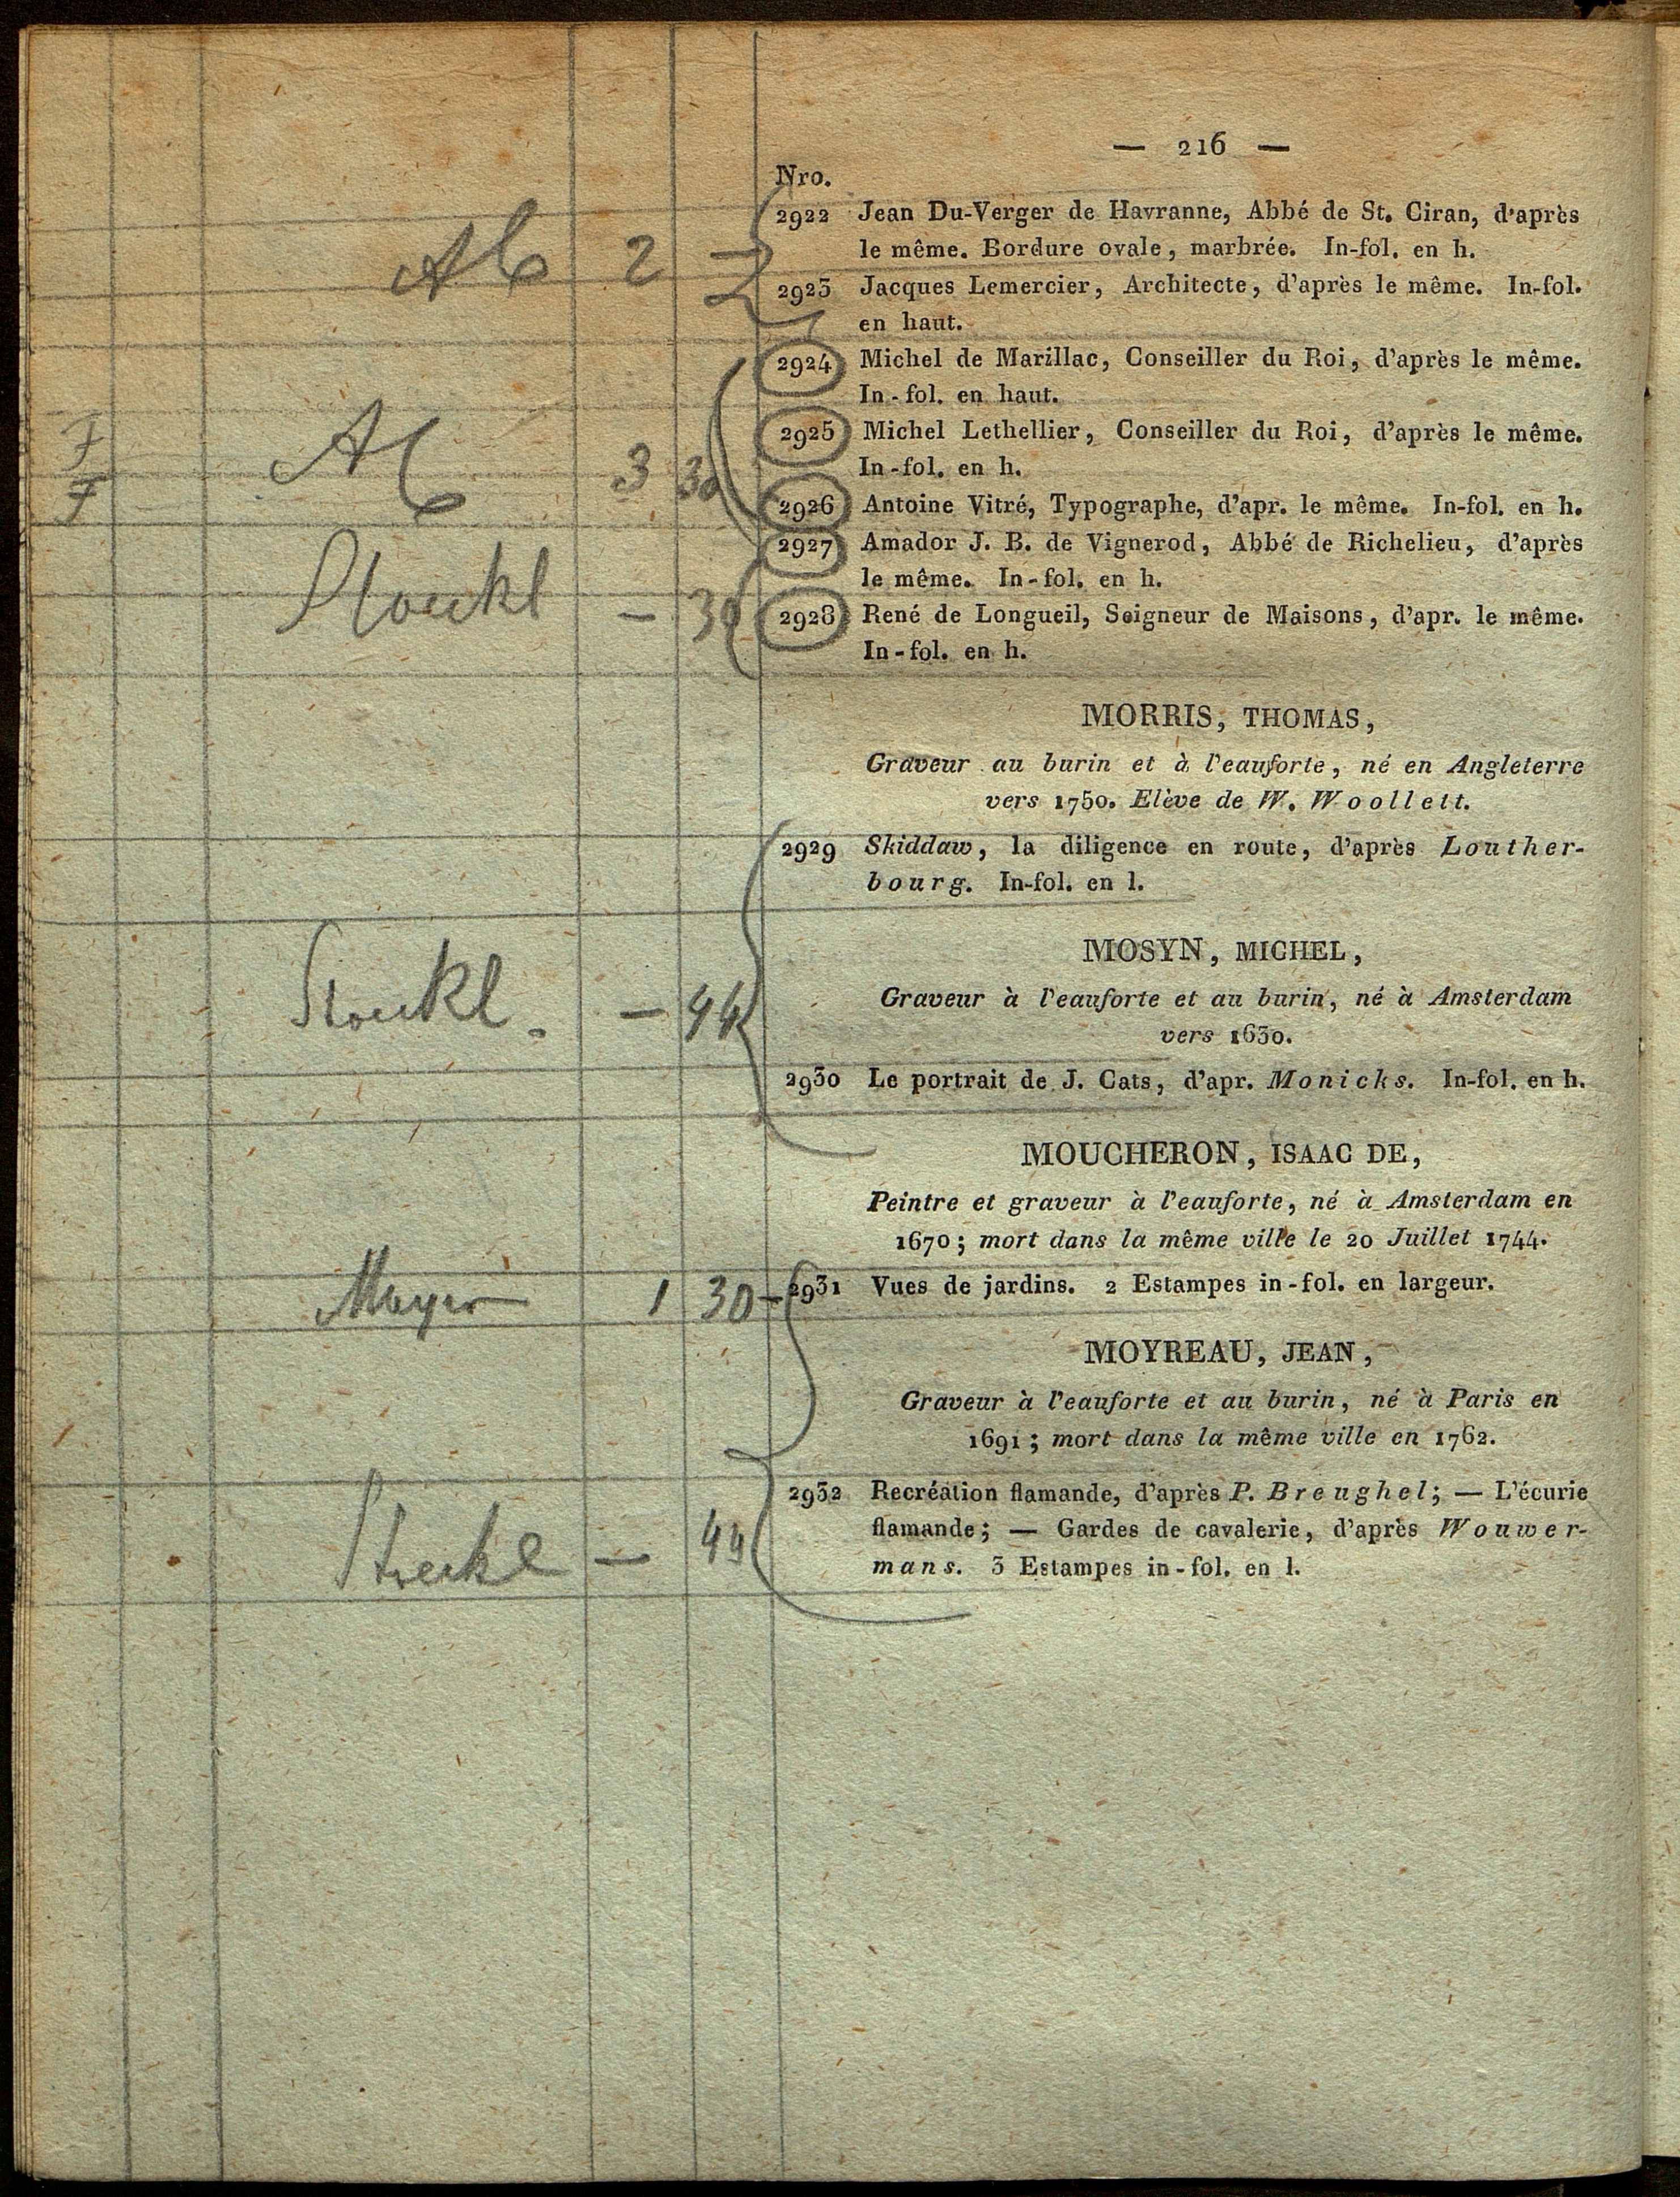 — 216 —
Nro.
2922 Jean Du-Verger de Havranne, Abbé de St. Ciran, d'après
le même. Bordure ovale, marbrée. In-fol. en h.
2 —
2923 Jacques Lemercier, Architecte, d'après le même. In-fol.
en haut.
2924 Michel de Marillac, Conseiller du Roi, d'après le même.
In-fol. en haut.
F
2925 Michel Lethellier, Conseiller du Roi, d'après le même.
In-fol. en h.
F 3 30
2926 Antoine Vitré, Typographe, d'apr. le même. In-fol. en h.
2927 Amador J. B. de Vignerod, Abbé de Richelieu, d'après
le même. In-fol. en h.
Stoeckl — 30
2928 René de Longueil, Seigneur de Maisons, d'apr. le même.
In-fol. en h.
MORRIS, THOMAS,
Graveur au burin et à l'eauforte, né en Angleterre
vers 1750. Elève de W. Woollett.
2929 Skiddaw, la diligence en route, d'après Louther-
bourg. In-fol. en l.
MOSYN, MICHEL,
Graveur à l'eauforte et au burin, né à Amsterdam
Stoeckl. — 44
vers 1630.
2930 Le portrait de J. Cats, d'apr. Monicks. In-fol. en h.
MOUCHERON, ISAAC DE,
Peintre et graveur à l'eauforte, né à Amsterdam en
1670; mort dans la même ville le 20 Juillet 1744.
Meyer 1 30 — 2931 Vues de jardins. 2 Estampes in-fol. en largeur.
MOYREAU, JEAN,
Graveur à l'eauforte et au burin, né à Paris en
1691; mort dans la même ville en 1762.
2932 Recréation flamande, d'après P. Breughel; — L'écurie
flamande; — Gardes de cavalerie, d'après Wouwer-
Stoeckl — 44
mans. 3 Estampes in-fol. en l.